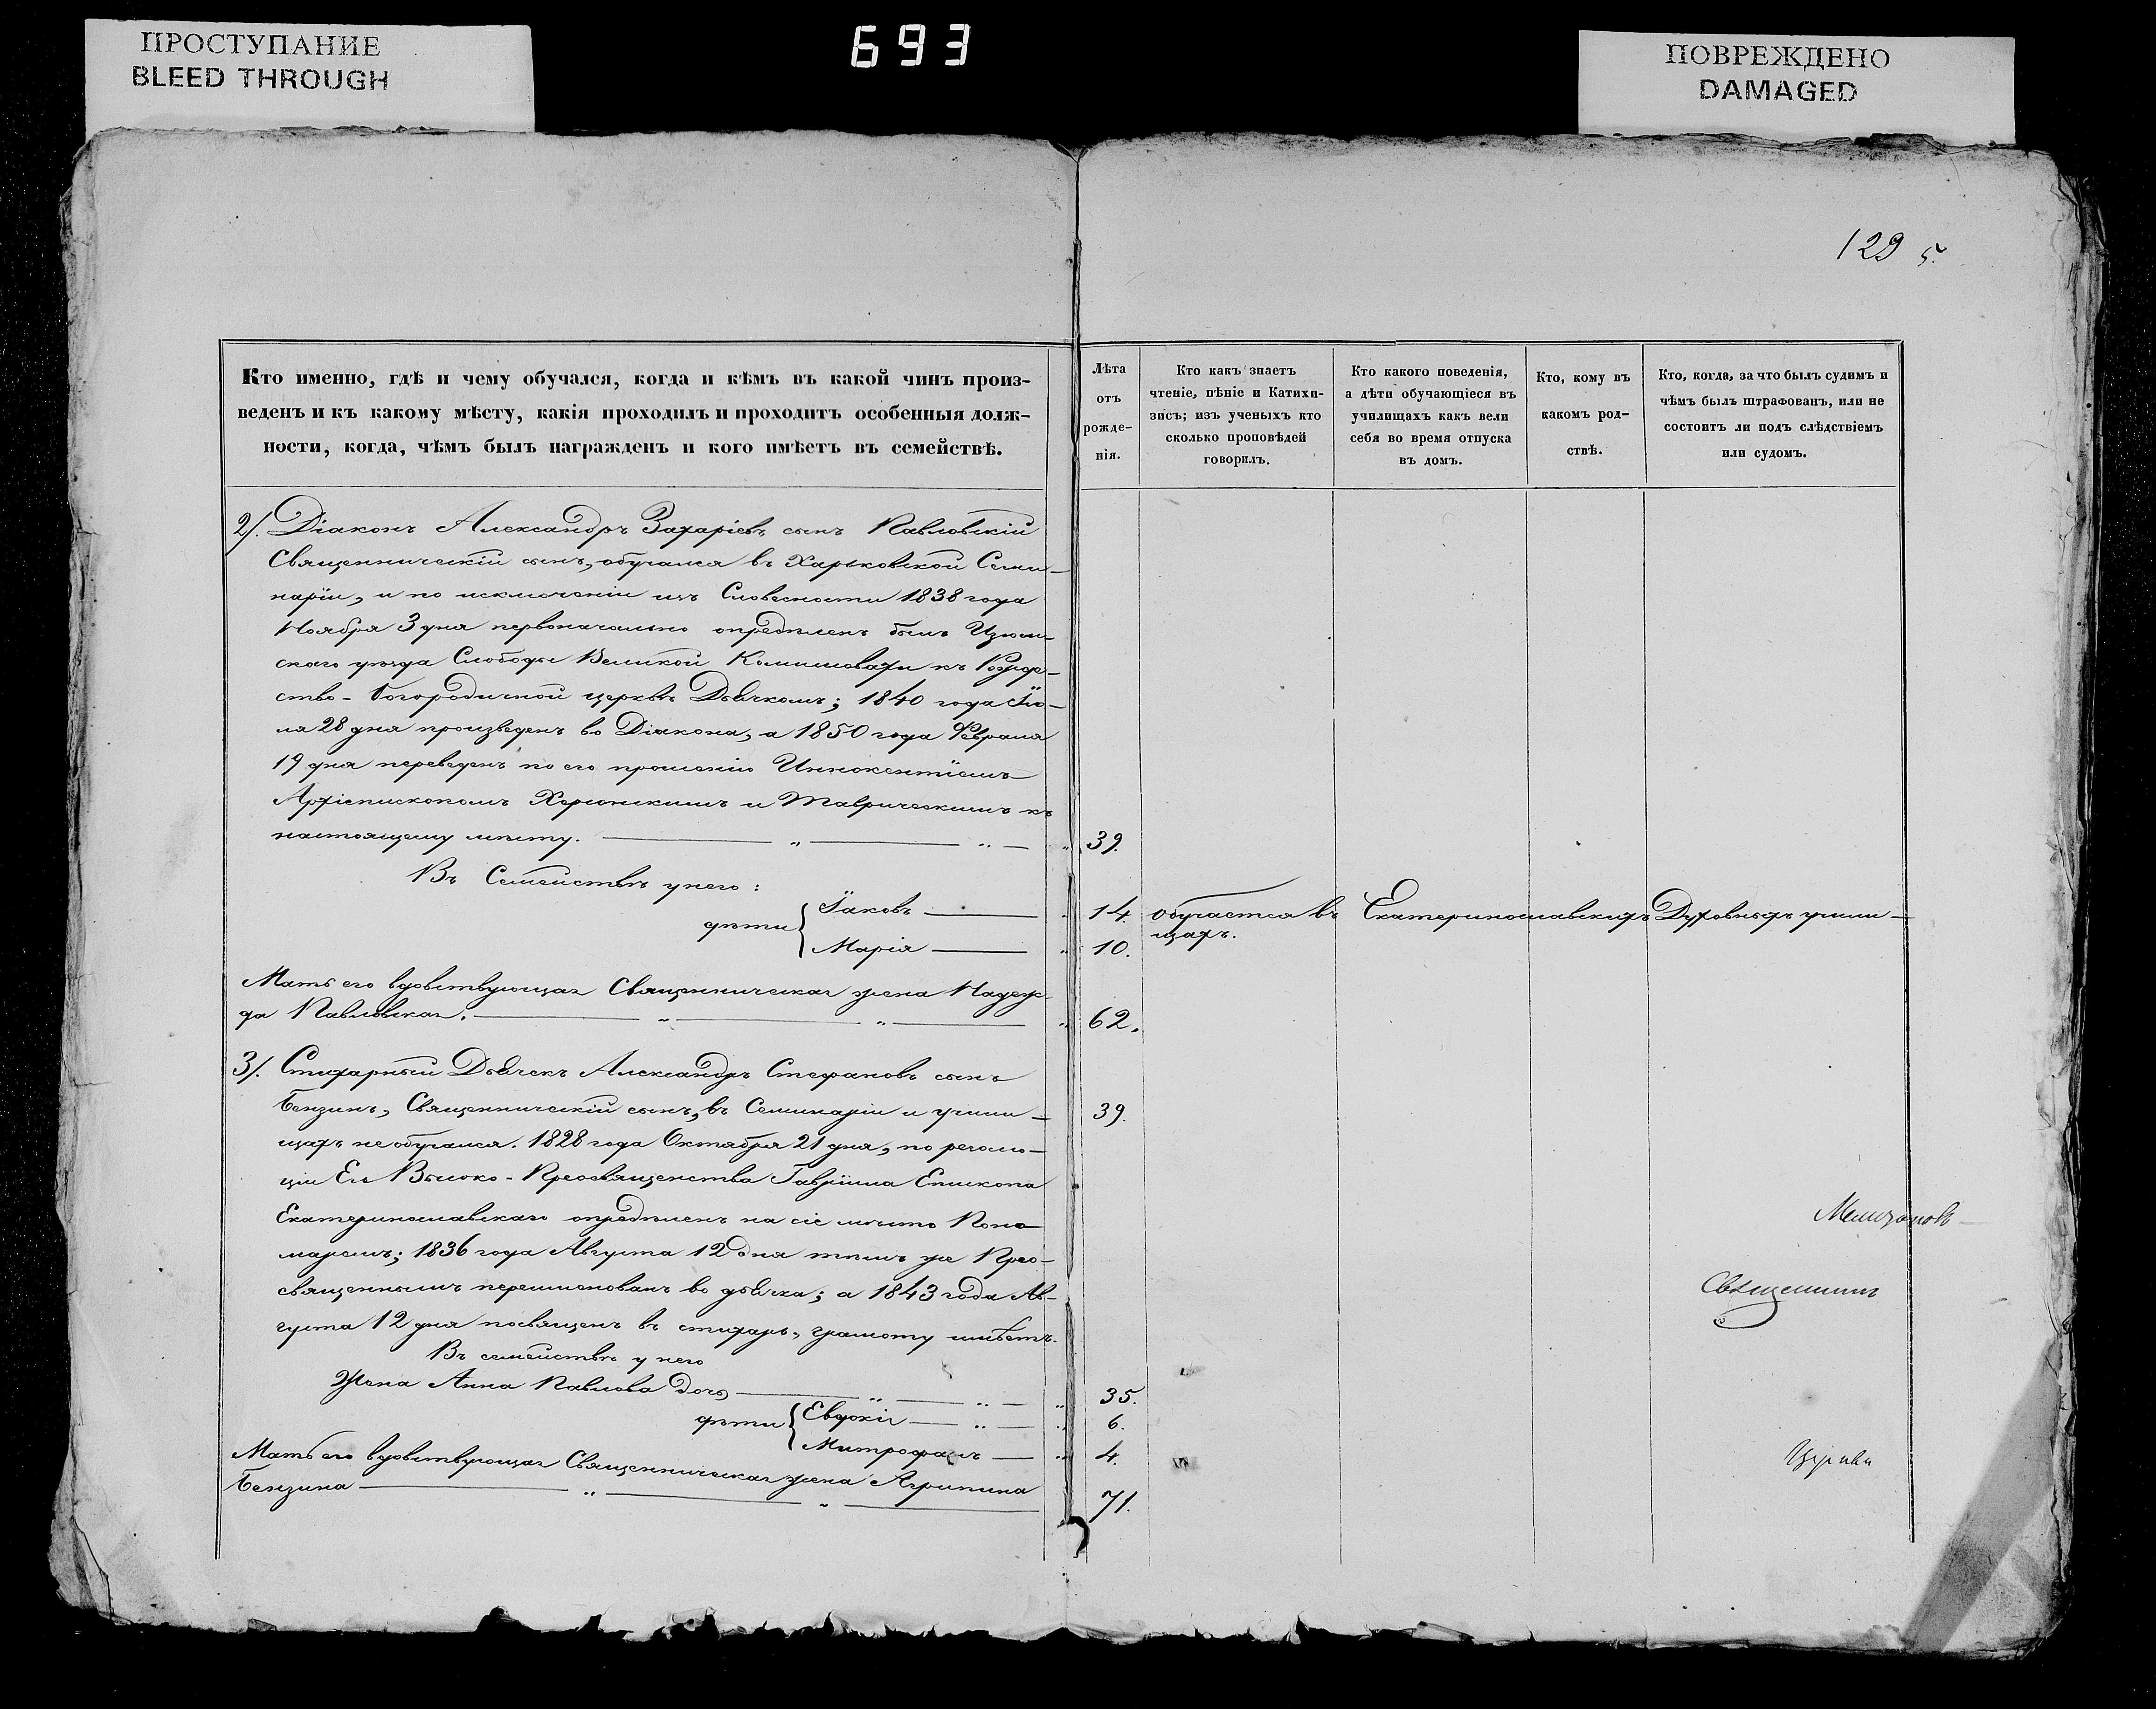 ПРОСТУПАНИЕ
BLEED THROUGH
693
ПОВРЕЖДЕНО
DAMAGED
129 5.
Кто именно, гдѣ и чему обучался, когда и кѣмъ въ какой чинъ произ-
веденъ и къ какому мѣсту, какія проходилъ и проходитъ особенныя долж-
ности, когда, чѣмъ былъ награжденъ и кого имѣетъ въ семействѣ.
Лѣта
отъ
рожде-
нія.
Кто какъ знаетъ
чтеніе, пѣніе и Катихи-
зисъ; изъ ученыхъ кто
сколько проповѣдей
говорилъ.
Кто какого поведенія,
а дѣти обучающіеся въ
училищахъ какъ вели
себя во время отпуска
въ домъ.
Кто, кому въ
какомъ род-
ствѣ.
Кто, когда, за что былъ судимъ и
чѣмъ былъ штрафованъ, или не
состоитъ ли подъ слѣдствіемъ
или судомъ.
2/. Діаконъ Александръ Захаріевъ сынъ Павловскій
Священническій сынъ, обучался въ Харьковской Семи-
наріи, и по исключеніи изъ Словесности 1838 года
Ноября 3 дня первоначально опредѣленъ былъ Изюм-
скаго уѣзда Слободы Великой Комишовахи къ Рожде-
ство-Богородичной церквѣ Дьячкомъ; 1840 года Ію-
ля 28 дня произведенъ во Діакона, а 1850 года Февраля
19 дня переведенъ по его прошенію Иннокентіемъ
Архіепископомъ Херсонскимъ и Таврическимъ къ
настоящему мѣсту. 39.
Въ Семействѣ у него:
дѣти { Іаковъ 14. обучается въ Екатеринославскихъ Духовныхъ учили-
щахъ.
Марія 10.
Мать его вдовствующая Священническая жена Надеж-
да Павловская. 62.
3/. Стихарный Дьячекъ Александръ Стефановъ сынъ
Бензинъ, Священническій сынъ, въ Семинаріи и учили- 39.
щахъ не обучался. 1828 года Октября 21 дня, по резолю-
ціи Его Высоко-Преосвященства Гавріила Епископа
Екатеринославскаго опредѣленъ на сіе мѣсто Поно-
маремъ; 1836 года Августа 12 дня тѣмъ же Прео-
священнымъ переименованъ во дьячка; а 1843 года Ав-
густа 12 дня посвященъ въ стихарь, грамоту имѣетъ.
Въ семействѣ у него
Жена Анна Павлова дочь 35.
дѣти { Евдокія 6.
Митрофанъ 4.
Мать его вдовствующая Священническая жена Агрипина
Бензина 71.
Священникъ
Церкви